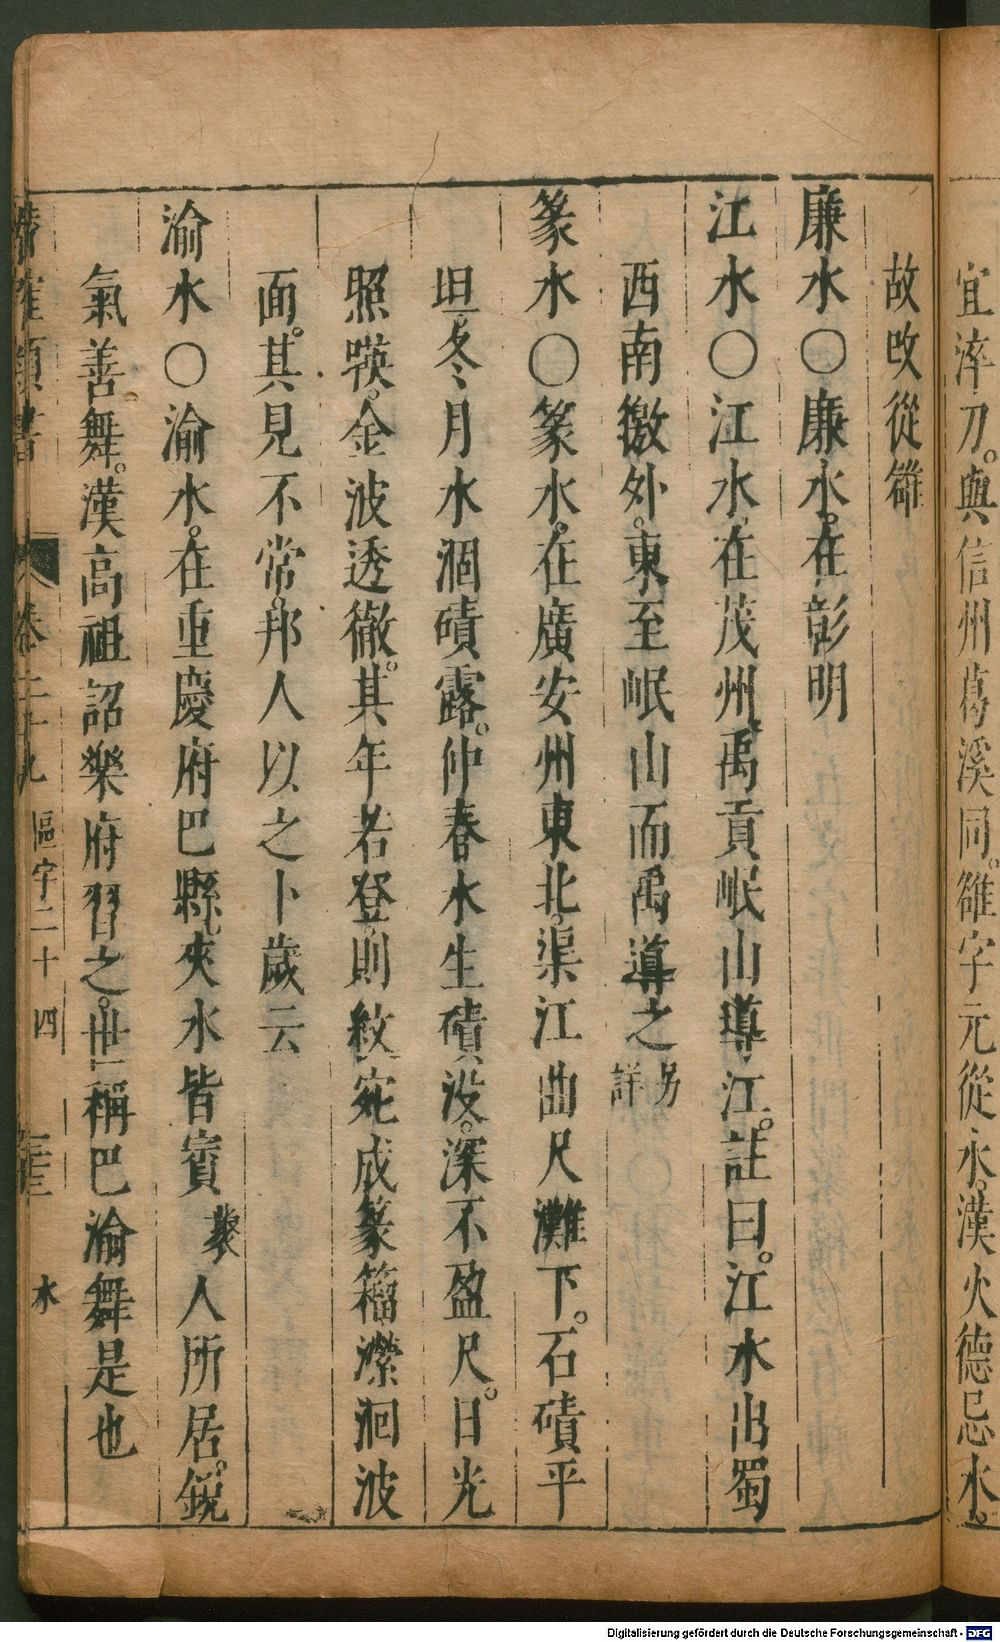 宜淬刀。與信州葛溪同。雒字元從水。漢火德忌水。
故改從雒
廉水○廉水。在彰明
江水○江水。在茂州。禹貢岷山導江。註曰。江水出蜀
西南徼外。東至岷山而禹導之另詳
篆水○篆水。在廣安州東北。渠江曲尺灘下。石磧平
坦。冬月水涸磧露。仲春水生磧没。深不盈尺。日光
照暎。金波透徹。其年若登。則紋宛成篆籀瀠洄波
面。其見不常。邦人以之卜歲云
渝水○渝水。在重慶府巴縣。夾水皆賨人所居。銳
氣善舞。漢高祖詔樂府習之。世稱巴渝舞是也
類書 卷二十九 區字二十四 水
Digitalisierung gefördert durch die Deutsche Forschungsgemeinschaft - DFG